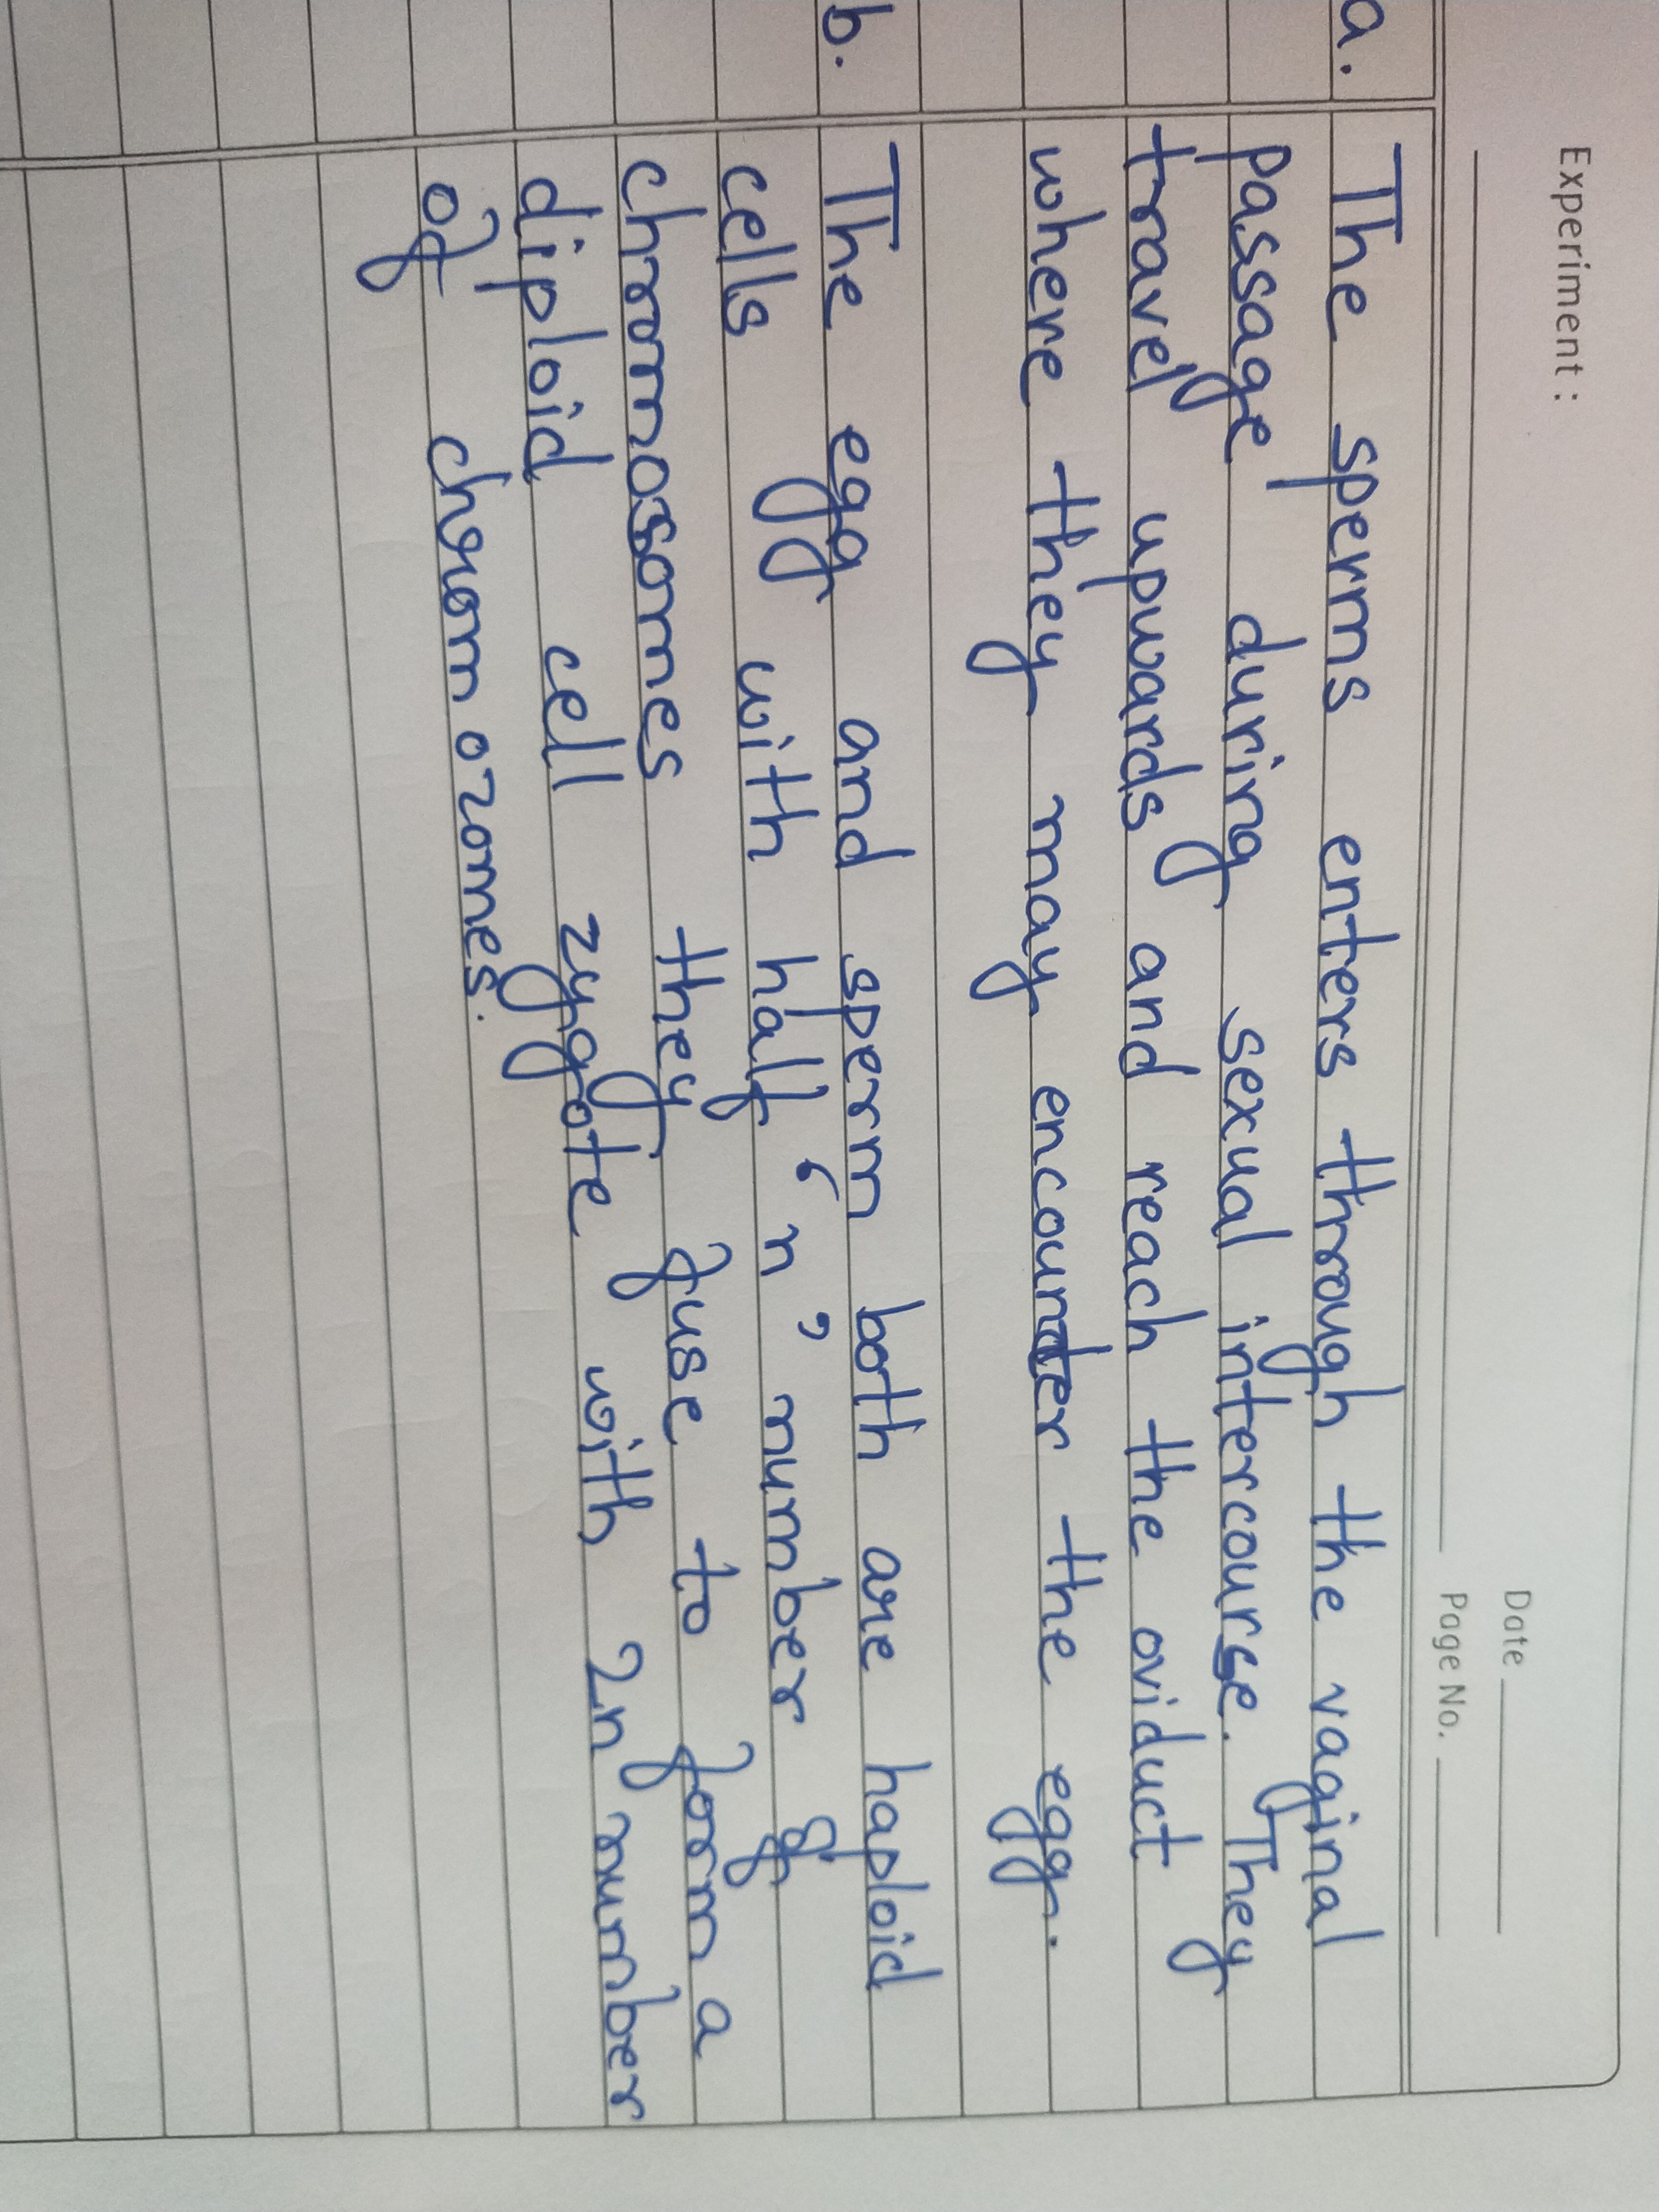 Experiment :
Date
Page No.
a. The sperms enters through the vaginal
passage during sexual intercourse. They
travel upwards and reach the oviduct
where they may encounter the egg.
b. The egg and sperm both are haploid
cells with half 'n' number of
chromosomes they fuse to form a
diploid cell zygote with 2n number
of chromozomes.